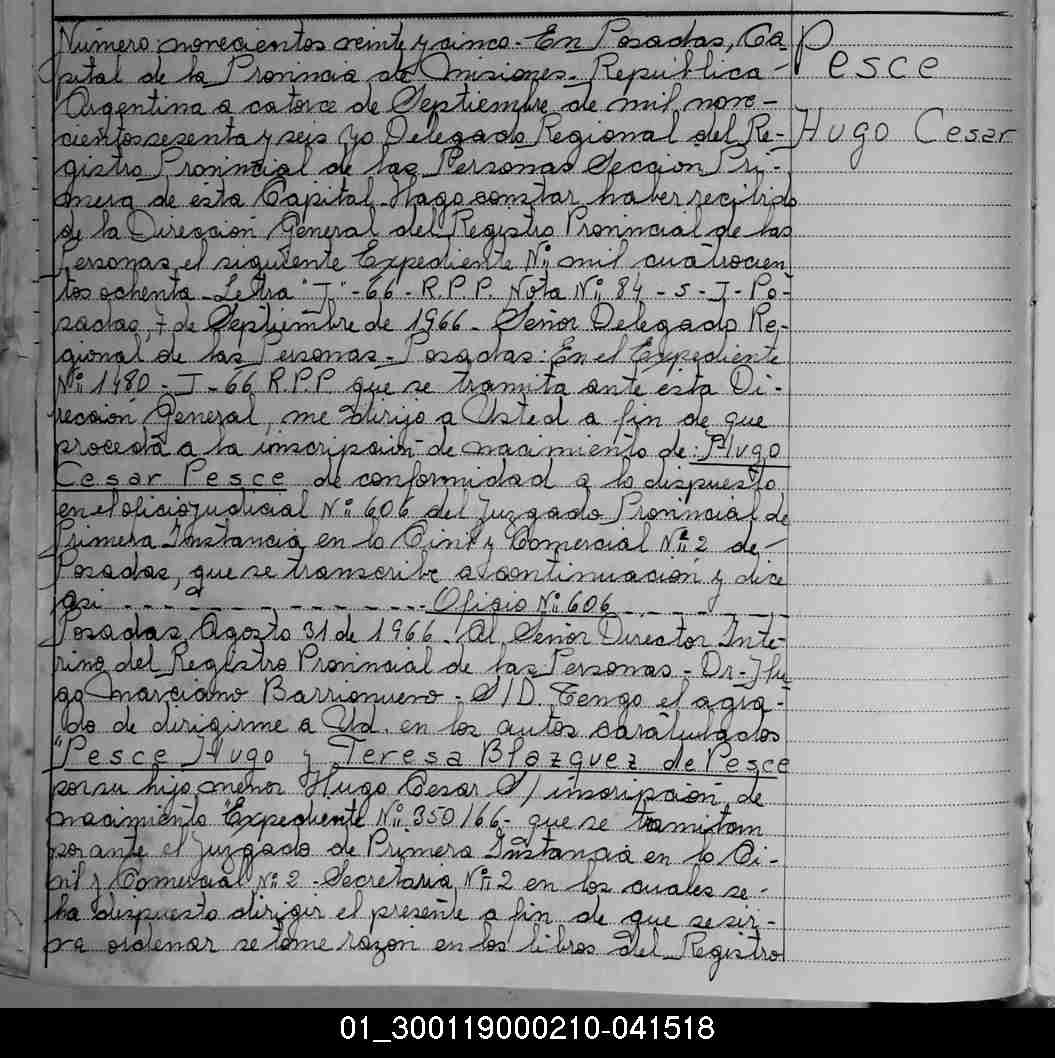 Número: novecientos veinte y cinco - En Posadas, Ca
pital de la Provincia de Misiones - República -
Argentina a catorce de Septiembre de mil nove -
cientos sesenta y seis yo Delegado Regional del Re -
gistro Provincial de las Personas Seccion Pri -
mera de esta Capital - Hago constar haber recibido
de la Direccion General del Registro Provincial de las
Personas el siguiente Expediente Nº mil cuatrocien
tos ochenta - Letra "I" - 66 - R.P.P. Nota Nº 84 - S - I - Po -
sadas, 7 de Septiembre de 1966 - Señor Delegado Re -
gional de las Personas - Posadas: En el Expediente
Nº 1480 - I - 66 R.P.P. que se tramita ante esta Di -
reccion General, me dirijo a Usted a fin de que
proceda a la inscripción de nacimiento de: Hugo
Cesar Pesce de conformidad a lo dispuesto
en el oficio judicial Nº 606 del Juzgado Provincial de
Primera Instancia en lo Civil y Comercial Nº 2 de -
Posadas, que se transcribe a continuacion y dice
asi - - - - - - - - - - - - - Oficio Nº 606 - - - - -
Posadas, Agosto 31 de 1966 - Al Señor Director Inte -
rino del Registro Provincial de las Personas - Dr - Hu
go Marciano Barrionuevo - S/D. Tengo el agra -
do de dirigirme a Ud. en los autos caratulados
"Pesce Hugo y Teresa Blazquez de Pesce
por su hijo menor Hugo Cesar S/ inscripción de
nacimiento "Expediente Nº 350/66 - que se tramitan
por ante el Juzgado de Primera Instancia en lo Ci -
vil y Comercial Nº 2 - Secretaria Nº 2 en los cuales se -
ha dispuesto dirigir el presente a fin de que se sir -
va ordenar se tome razón en los libros del Registro
Pesce
Hugo Cesar
01_300119000210-041518